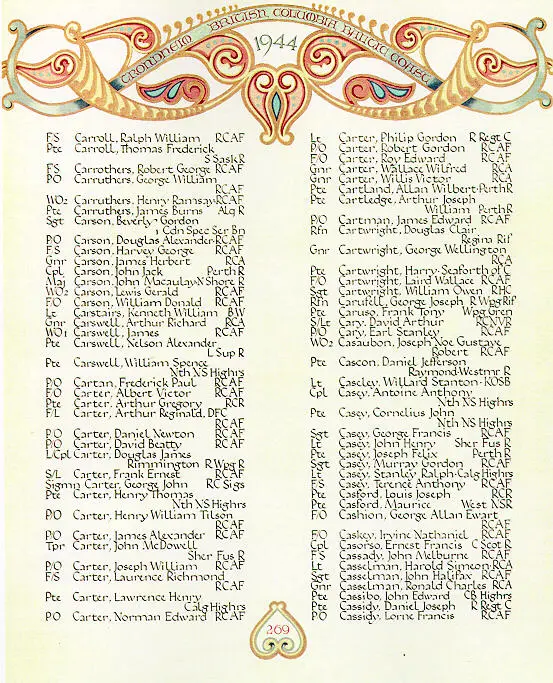 TRONDHEIM BRITISH COLUMBIA BALTIC COAST
1944
FS Carroll, Ralph William RCAF
Pte Carroll, Thomas Frederick
S Sask R
FS Carrothers, Robert George RCAF
P/O Carruthers, George William
RCAF
WO2 Carruthers, Henry Ramsay RCAF
Pte Carruthers, James Burns Alq R
Sgt Carson, Beverly Gordon
1 Cdn Spec Ser Bn
P/O Carson, Douglas Alexander RCAF
F S Carson, Harvey George RCAF
Gnr Carson, James Herbert RCA
Cpl Carson, John Jack Perth R
Maj Carson, John Macaulay N Shore R
WO2 Carson, Lewis Gerald RCAF
F/O Carson, William Donald RCAF
Lt Carstairs, Kenneth William BW
Gnr Carswell, Arthur Richard RCA
WO1 Carswell, James RCAF
Pte Carswell, Nelson Alexander
L Sup R
Pte Carswell, William Spence
Nth NS Highrs
P/O Cartan, Frederick Paul RCAF
F/O Carter, Albert Victor RCAF
Pte Carter, Arthur Gregory RCR
F/L Carter, Arthur Reginald, DFC
RCAF
P/O Carter, Daniel Newton RCAF
P/O Carter, David Beatty RCAF
L/Cpl Carter, Douglas James
Rimmington R Wpg R
S/L Carter, Frank Ernest RCAF
Sigmn Carter, George John RC Sigs
Pte Carter, Henry Thomas
Nth NS Highrs
P/O Carter, Henry William Tilson
RCAF
P/O Carter, James Alexander RCAF
Tpr Carter, John McDowell
Sher Fus R
P/O Carter, Joseph William RCAF
F/S Carter, Laurence Richmond
RCAF
Pte Carter, Lawrence Henry
Calg Highrs
P O Carter, Norman Edward RCAF
Lt Carter, Philip Gordon R Regt C
P/O Carter, Robert Gordon RCAF
F/O Carter, Roy Edward RCAF
Gnr Carter, Wallace Wilfred RCA
Gnr Carter, Willis Victor RCA
Pte Cartland, Allan Wilbert-Perth R
Pte Cartledge, Arthur Joseph
William Perth R
P/O Cartman, James Edward RCAF
Rfn Cartwright, Douglas Clair
Regina Rif
Gnr Cartwright, George Wellington
RCA
Pte Cartwright, Harry-Seaforth of C
F/O Cartwright, Laird Wallace RCAF
Sgt Cartwright, William Owen RHC
Rfn Carufell, George Joseph R Wpg Rif
Pte Caruso, Frank Tony Wpg Gren
S/Lt Cary, David Arthur RCNVR
P/O Cary, Earl Stanley RCAF
WO2 Casaubon, Joseph Noe Gustave
Robert RCAF
Pte Cascon, Daniel Jefferson
Raymond-Westmr R
Lt Caseley, Willard Stanton-KOSB
Cpl Casey, Antoine Anthony
Nth NS Highrs
Pte Casey, Cornelius John
Nth NS Highrs
Sgt Casey, George Francis RCAF
Lt Casey, John Henry Sher Fus R
Pte Casey, Joseph Felix Perth R
Sgt Casey, Murray Gordon RCAF
Lt Casey, Stanley Ralph-Calg Highrs
F S Casey, Terence Anthony RCAF
Pte Casford, Louis Joseph RCR
Pte Casford, Maurice West NSR
F/O Cashion, George Allan Ewart
RCAF
F/O Caskey, Irvine Nathaniel RCAF
Cpl Casorso, Ernest Francis C Scot R
F S Cassady, John Melburne RCAF
Lt Casselman, Harold Simeon-RCA
Sgt Casselman, John Halifax RCAF
Gnr Casselman, Ronald Charles RCA
Pte Cassibo, John Edward CB Highrs
Pte Cassidy, Daniel Joseph R Regt C
P O Cassidy, Lorne Francis RCAF
269